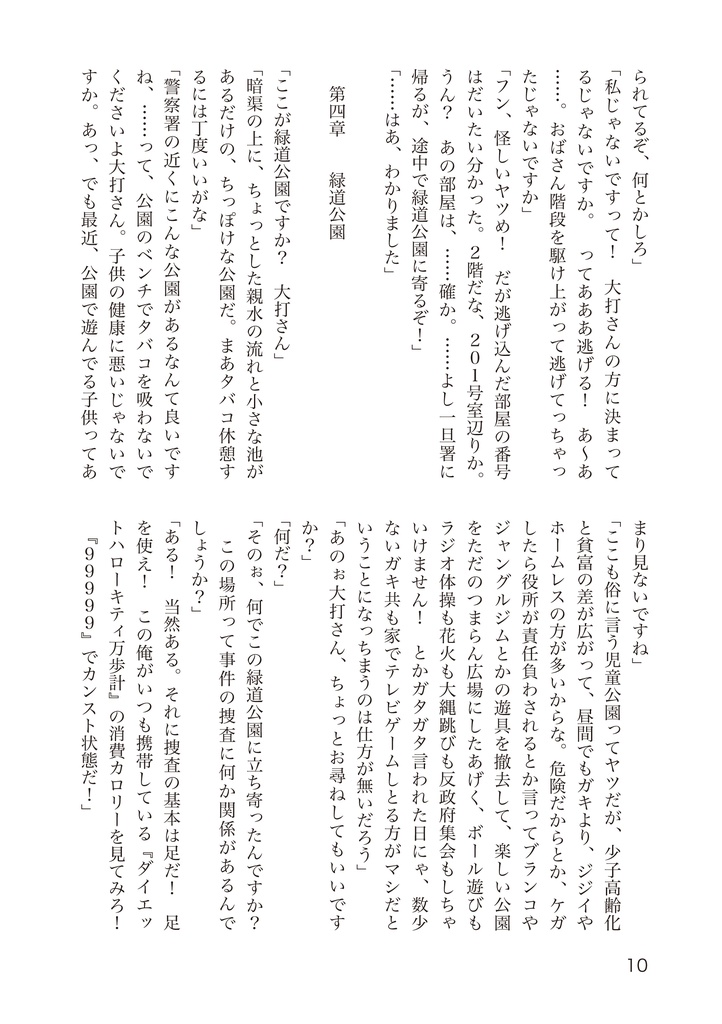 られてるぞ、何とかしろ」
「私じゃないですって！　大打さんの方に決まって
るじゃないですか。　ってあああ逃げる！　あ～あ
……。おばさん階段を駆け上がって逃げてっちゃっ
たじゃないですか」
「フン、怪しいヤツめ！　だが逃げ込んだ部屋の番号
はだいたい分かった。２階だな、２０１号室辺りか。
うん？　あの部屋は、……確か。……よし一旦署に
帰るが、途中で緑道公園に寄るぞ！」
「……はあ、わかりました」
第四章　　緑道公園
「ここが緑道公園ですか？　大打さん」
「暗渠の上に、ちょっとした親水の流れと小さな池が
あるだけの、ちっぽけな公園だ。まあタバコ休憩す
るには丁度いいがな」
「警察署の近くにこんな公園があるなんて良いです
ね、……って、公園のベンチでタバコを吸わないで
くださいよ大打さん。子供の健康に悪いじゃないで
すか。あっ、でも最近、公園で遊んでる子供ってあ
まり見ないですね」
「ここも俗に言う児童公園ってヤツだが、少子高齢化
と貧富の差が広がって、昼間でもガキより、ジジイや
ホームレスの方が多いからな。危険だからとか、ケガ
したら役所が責任負わされるとか言ってブランコや
ジャングルジムとかの遊具を撤去して、楽しい公園
をただのつまらん広場にしたあげく、ボール遊びも
ラジオ体操も花火も大縄跳びも反政府集会もしちゃ
いけません！　とかガタガタ言われた日にゃ、数少
ないガキ共も家でテレビゲームしとる方がマシだと
いうことになっちまうのは仕方が無いだろう」
「あのぉ大打さん、ちょっとお尋ねしてもいいです
か？」
「何だ？」
「そのぉ、何でこの緑道公園に立ち寄ったんですか？
この場所って事件の捜査に何か関係があるんで
しょうか？」
「ある！　当然ある。それに捜査の基本は足だ！　足
を使え！　この俺がいつも携帯している『ダイエッ
トハローキティ万歩計』の消費カロリーを見てみろ！
『９９９９９』でカンスト状態だ！」
10